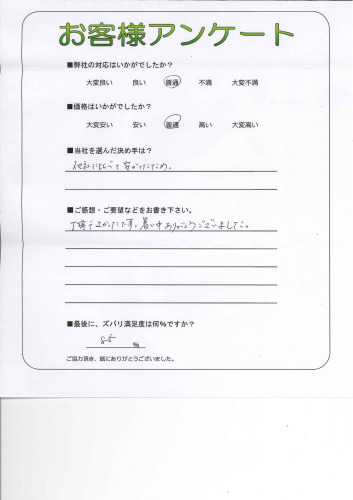 お客様アンケート
■弊社の対応はいかがでしたか？
大変良い 良い 普通 不満 大変不満
■価格はいかがでしたか？
大変安い 安い 普通 高い 大変高い
■当社を選んだ決め手は？
他社に比べて安かったため。
■ご感想・ご要望などをお書き下さい。
丁寧でよかったです。暑い中ありがとうございました。
■最後に、ズバリ満足度は何％ですか？
85 ％
ご協力頂き、誠にありがとうございました。